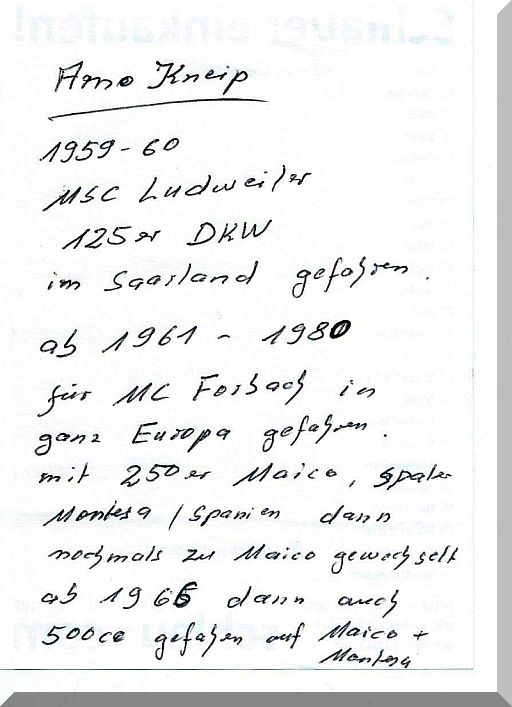 Arno Kneip
1959-60
MSC Ludweiler
125er DKW
im Saarland gefahren.
ab 1961 - 1980
für MC Forbach in
ganz Europa gefahren.
mit 250er Maico, später
Montesa / Spanien dann
nochmals zu Maico gewechselt
ab 1966 dann auch
500cc gefahren auf Maico +
Montesa